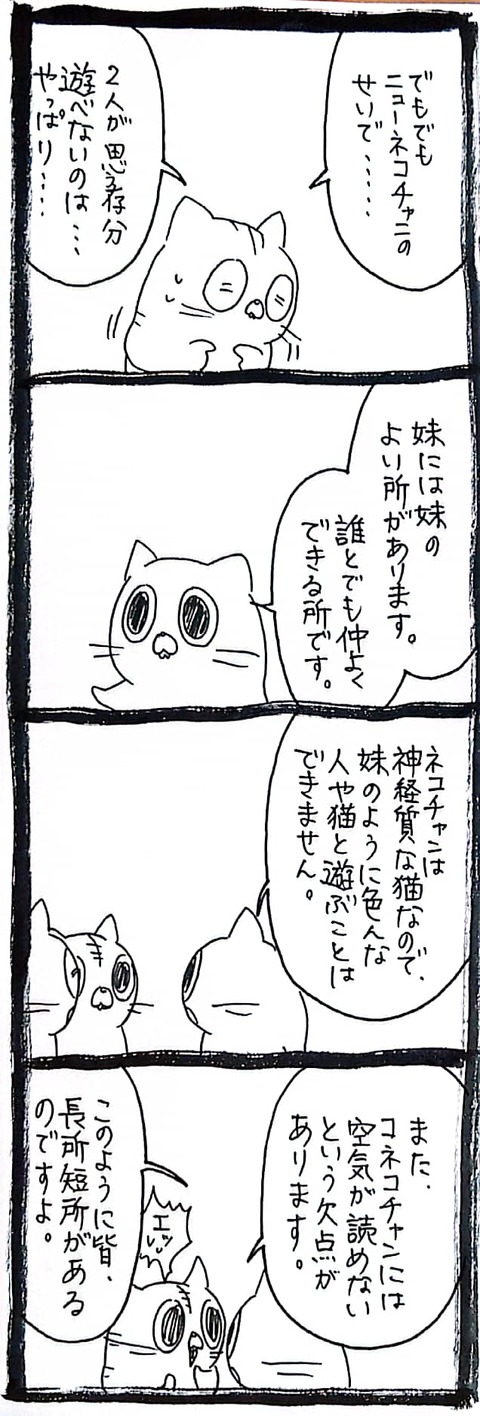 でもでも
ニューネコチャンの
せいで……
2人が思う存分
遊べないのは…
やっぱり…
妹には妹の
よい所があります。
誰とでも仲よく
できる所です。
ネコチャンは
神経質な猫なので、
妹のように色んな
人や猫と遊ぶことは
できません。
また、
コネコチャンには
空気が読めない
という欠点が
あります。
エッ
このように皆、
長所短所がある
のですよ。